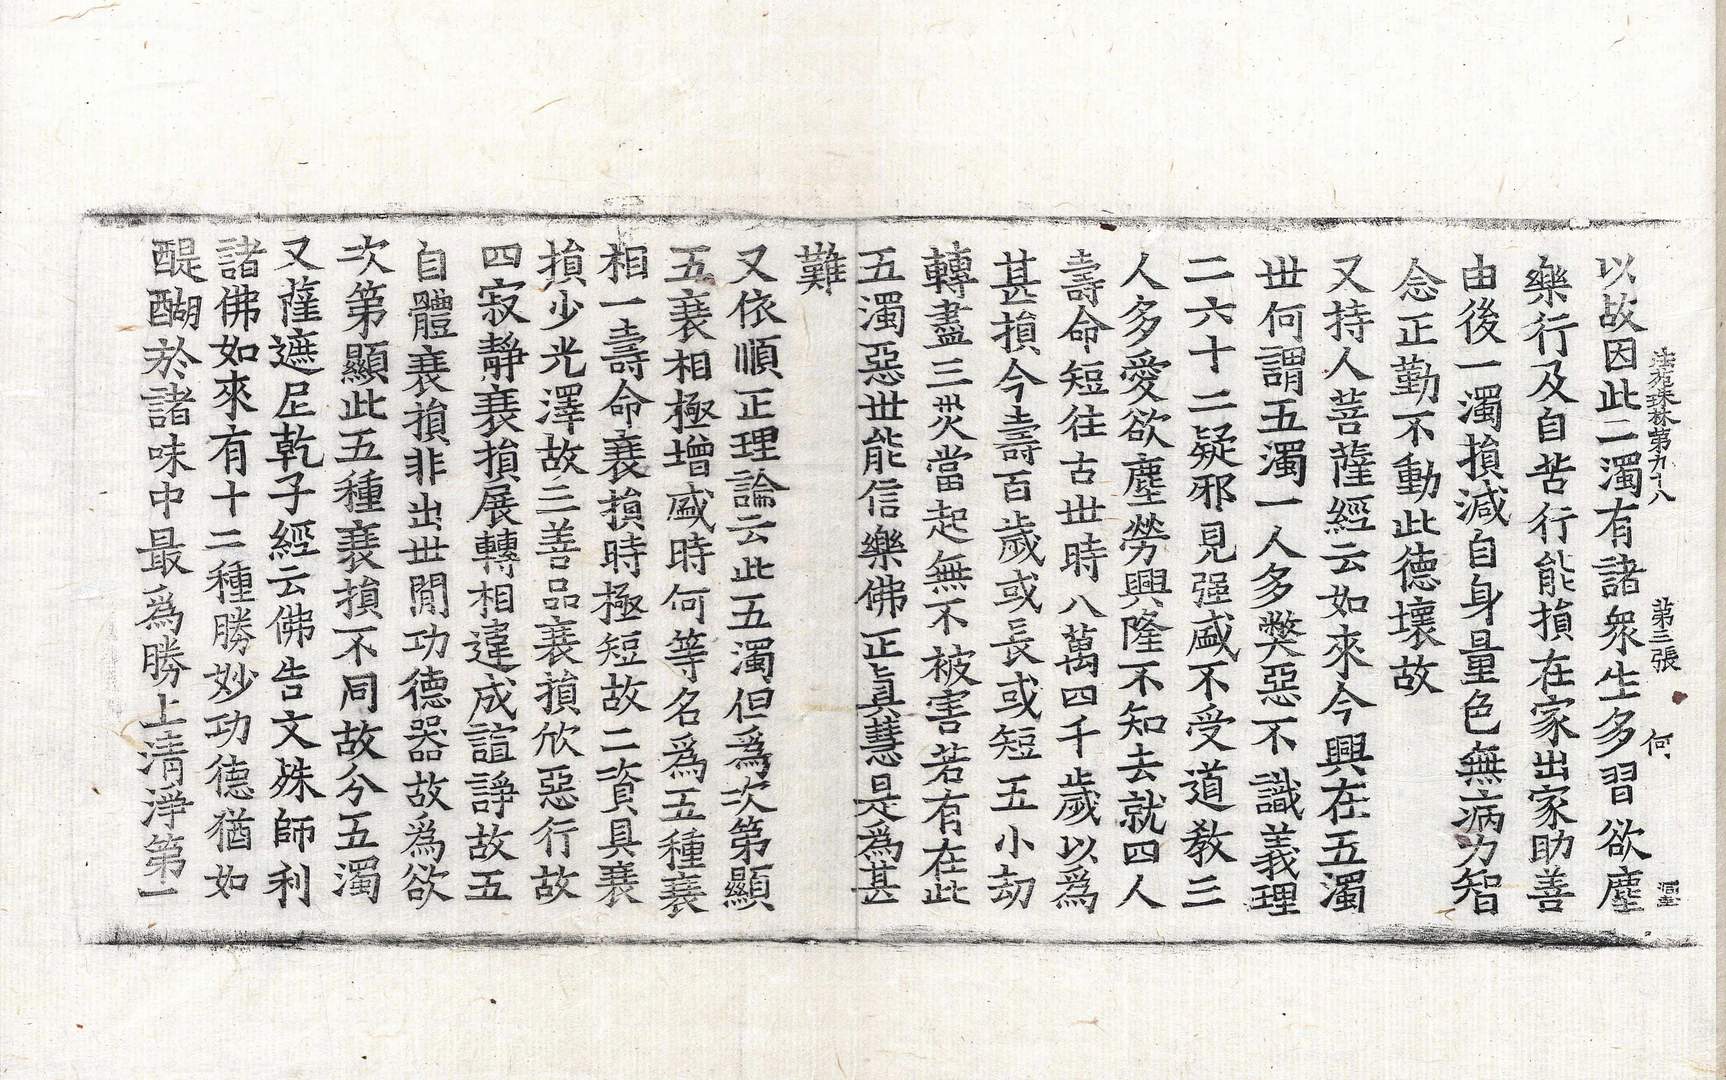 法苑珠林第九十八 第三張 何
以故因此二濁有諸衆生多習欲塵
樂行及自苦行能損在家出家助善
由後一濁損減自身量色無病力智
念正勤不動此德壞故
又持人菩薩經云如來今興在五濁
世何謂五濁一人多弊惡不識義理
二六十二疑邪見强盛不受道教三
人多愛欲塵勞興隆不知去就四人
壽命短往古世時八萬四千歲以爲
甚損今壽百歲或長或短五小劫
轉盡三灾當起無不被害若有在此
五濁惡世能信樂佛正真慧是爲甚
難
又依順正理論云此五濁但爲次第顯
五衰相極增盛時何等名爲五種衰
相一壽命衰損時極短故二資具衰
損少光澤故三善品衰損欣惡行故
四寂靜衰損展轉相違成諠諍故五
自體衰損非出世間功德器故爲欲
次第顯此五種衰損不同故分五濁
又薩遮尼乾子經云佛告文殊師利
諸佛如來有十二種勝妙功德猶如
醍醐於諸味中最爲勝上清淨第一